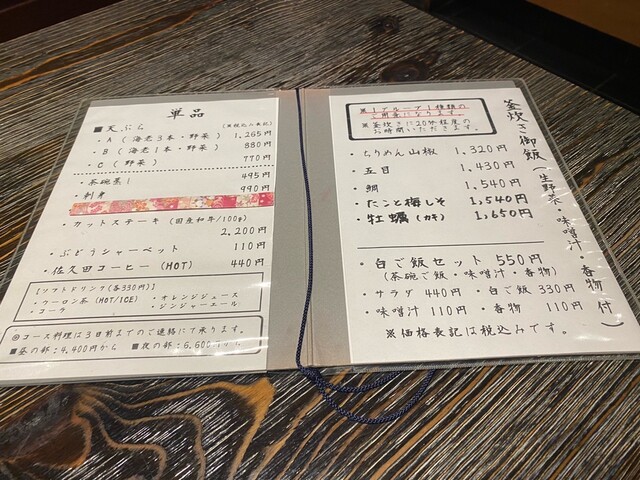 単品
■天ぷら (※税込み表記)
・A (海老3本・野菜) 1,265円
・B (海老1本・野菜) 880円
・C (野菜) 770円
・茶碗蒸し 495円
・刺身 990円
・カットステーキ (国産和牛/100g)
2,200円
・ぶどうシャーベット 110円
・佐久田コーヒー(HOT) 440円
【ソフトドリンク(各330円)】
・ウーロン茶(HOT/ICE) ・オレンジジュース
・コーラ ・ジンジャーエール
◎コース料理は3日前までのご連絡にて承ります。
■昼の部:4,400円から ■夜の部:6,600円から
釜炊き御飯(生野菜・味噌汁・香物付)
※1グループ1種類の
ご用意になります。
※釜炊きに20分程度の
お時間いただきます。
・ちりめん山椒 1,320円
・五目 1,430円
・鯛 1,540円
・たこと梅しそ 1,540円
・牡蠣(カキ) 1,650円
・白ご飯セット 550円
(茶碗ご飯・味噌汁・香物)
・サラダ 440円 ・白ご飯 330円
・味噌汁 110円 ・香物 110円
※価格表記は税込みです。